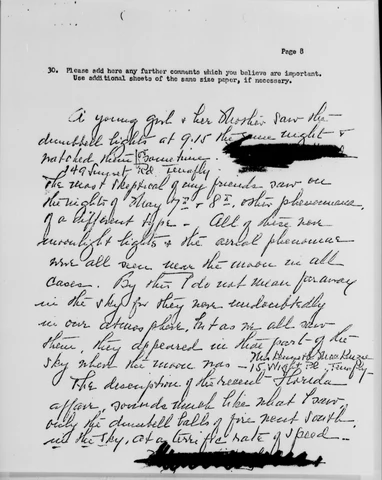 Page 8
30. Please add here any further comments which you believe are important.
Use additional sheets of the same size paper, if necessary.
A young girl & her Mother saw the
dumbbell lights at 9.15 the same night &
watched them some time.
149 August Rd.
The most skeptical of my friends saw on
the nights of May 7th - 8th, other phenomena
of a different type - All of these were
moonlight nights & the aerial phenomena
were all seen near the moon in all
cases. By this I do not mean far away
in the sky for they were undoubtedly
in our atmosphere, but as we all saw
them, they appeared in that part of the
sky where the moon was -
15 Wright Pl,
The description of the recent Florida
affair, sounds much like what I saw,
only the dumbbell balls of fire went South
in the sky, at a terrific rate of speed -